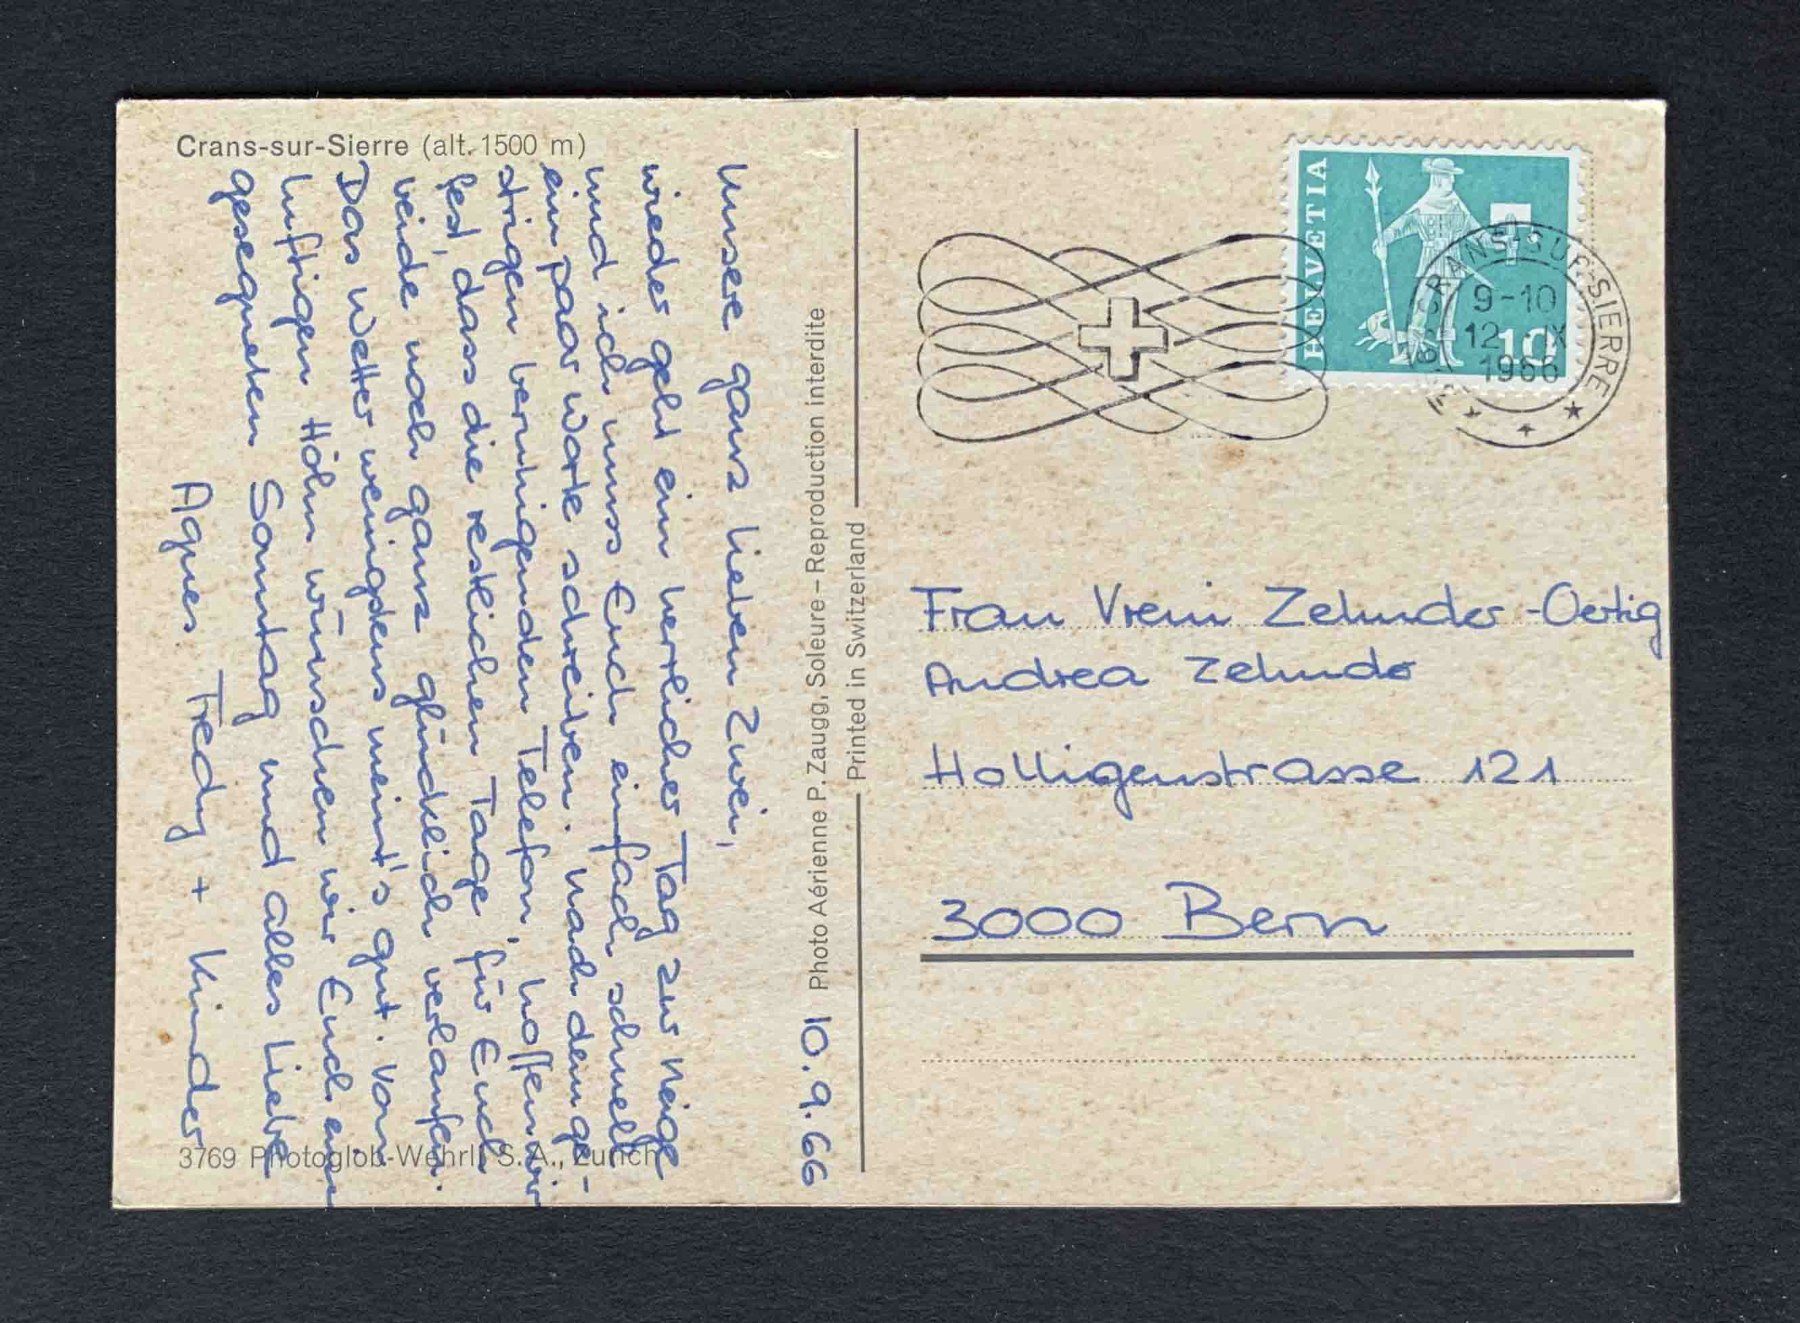 Crans-sur-Sierre (alt. 1500 m)
10.9.66
Unsere ganz lieben Zwei,
wieder geht ein herrlicher Tag zur Neige
und ich muss Euch einfach schnell
ein paar Worte schreiben. Nach dem ge-
strigen beruhigenden Telefon, hoffen wir
fest, dass die restlichen Tage für Euch
beide noch ganz glücklich verlaufen.
Das Wetter wenigstens meint's gut. Von
luftigen Höhn wünschen wir Euch einen
gesegneten Sonntag und alles Liebe
Agnes Fredy + Kinder
3769 Photoglob-Wehrli S.A., Zürich
Photo Aérienne P. Zaugg, Soleure – Reproduction interdite
Printed in Switzerland
HELVETIA
10
CRANS-SUR-SIERRE
9-10
12. IX
1966
Frau Vreni Zehnder-Oertig
Andrea Zehnder
Holligenstrasse 121
3000 Bern